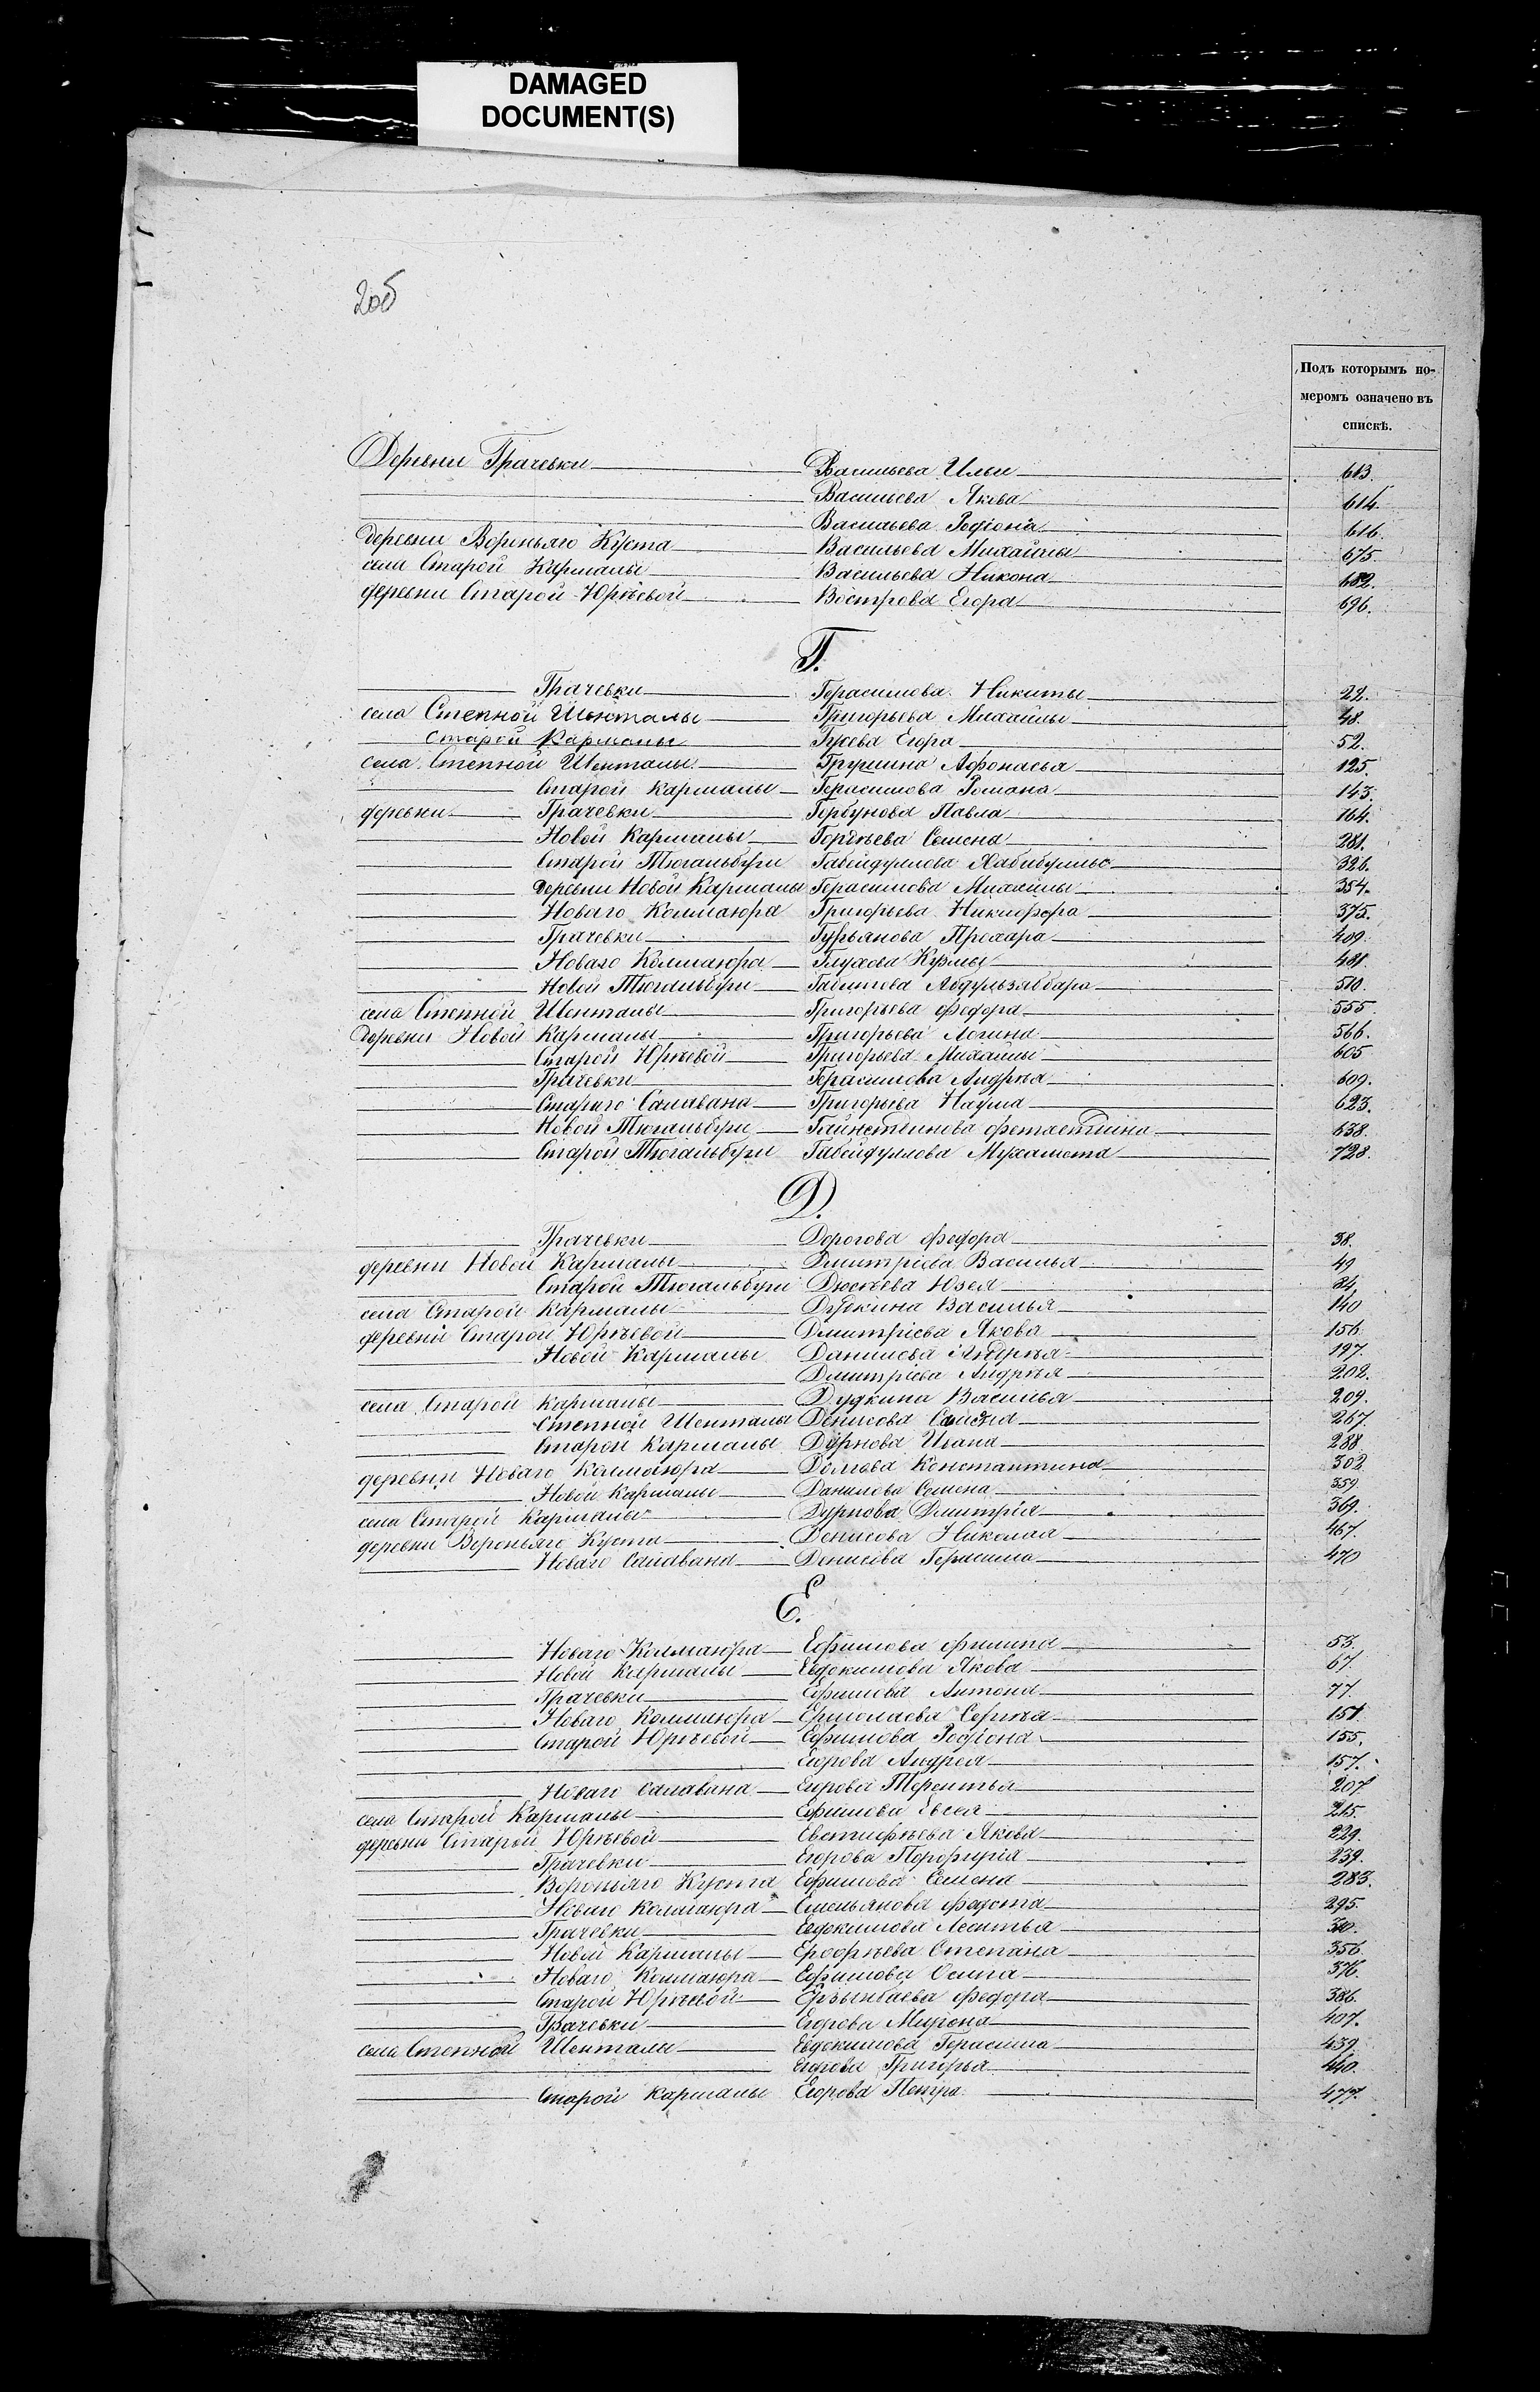 DAMAGED
DOCUMENT(S)
206
Подъ которымъ но-
меромъ означено въ
спискѣ.
Деревни Грачевки Васильева Ильи 613.
Васильева Якова 614.
Васильева Родіона 616.
деревни Вороньяго Куста Васильева Михайлы 675.
села Старой Кармалы Васильева Никона 682.
деревни Старой Юрѣевой Вострова Егора 696.
Г.
Грачевки Герасимова Никиты 22.
села Степной Шенталы Григорьева Михайлы 48.
Старой Кармалы Гусева Егора 52.
села Степной Шенталы Грушина Афонасья 125.
Старой Кармалы Герасимова Романа 143.
деревни Грачевки Горбунова Павла 164.
Новой Кармалы Гордѣева Семена 281.
Старой Тюгальбуги Габейдуллова Хабибуллы 326.
деревни Новой Кармалы Герасимова Михайлы 354.
Новаго Колмаюра Григорьева Никифора 375.
Грачевки Гурьянова Прохара 409.
Новаго Колмаюра Глухова Кузмы 481.
Новой Тюгальбуги Габитова Абдульзяббара 510.
села Степной Шенталы Григорьева Федора 555.
деревни Новой Кармалы Григорьева Логина 566.
Старой Юрѣевой Григорьева Михайлы 605
Грачевки Герасимова Андрѣя 609.
Стараго Салавана Григорьева Наума 623.
Новой Тюгальбуги Гайнетдинова 638.
Старой Тюгальбуги Габейдуллова Мухамета 728.
Д.
Грачевки Дорогова Федора 38.
деревни Новой Кармалы Дмитріева Василья 49
Старой Тюгальбуги Дюсѣева Юзея 84
села Старой Кармалы Дудкина Василья 140
деревни Старой Юрѣевой Дмитріева Якова 156
Новой Кармалы Данилова Андрѣя 197.
Дмитріева Андрѣя 202.
села Старой Кармалы Дудкина Василья 209.
Степной Шенталы Денисова 267.
Старой Кармалы Дурнова Ивана 288
деревни Новаго Колмаюра Долгова Константина 302
Новой Кармалы Данилова Семена 359
села Старой Кармалы Дурнова Дмитрія 369.
деревни Вороньяго Куста Денисова Николая 467.
Новаго Салавана Денисова Герасима 470
Е.
Новаго Колмаюра Ефимова Филипа 53.
Новой Кармалы Евдокимова Якова 67.
Грачевки Ефимова Антона 77.
Новаго Колмаюра Ермолаева Сергѣя 151.
Старой Юрѣевой Ефимова Родіона 155.
Егорова Андрея 157.
Новаго Салавана Егорова Терентья 207
села Старой Кармалы Ефимова Евсея 215.
деревни Старой Юрѣевой Евстифѣева Якова 229.
Грачевки Егорова Порфирія 239.
Вороньяго Куста Ефимова Семена 283.
Новаго Колмаюра Емельянова Федота 295.
Грачевки Евдокимова Леонтья
Новой Кармалы Ерофѣева Степана 356.
Новаго Колмаюра Ефимова Осипа 376.
Старой Юрѣевой Ерзынбаева Федора 386.
Грачевки Егорова Мирона 407.
села Степной Шенталы Евдокимова Герасима 439.
Егорова Григорья 440.
Старой Кармалы Егорова Петра 477.